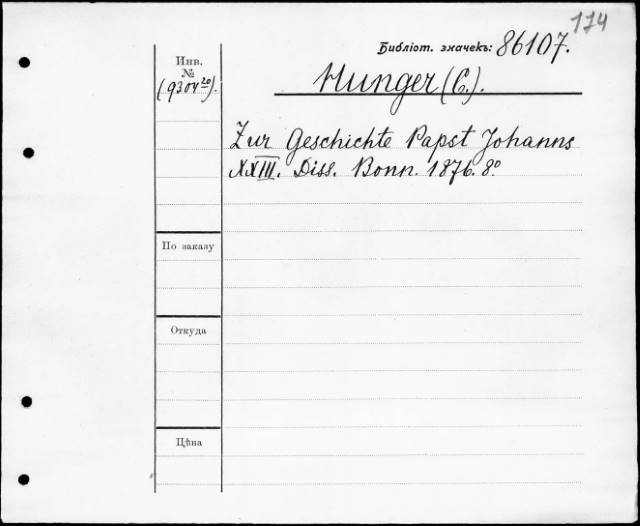 174
Библіот. значекъ: 86107.
Инв.
№
(9304²⁰).
Hunger (C.).
Zur Geschichte Papst Johanns
XXIII. Diss. Bonn. 1876. 8º
По заказу
Откуда
Цѣна